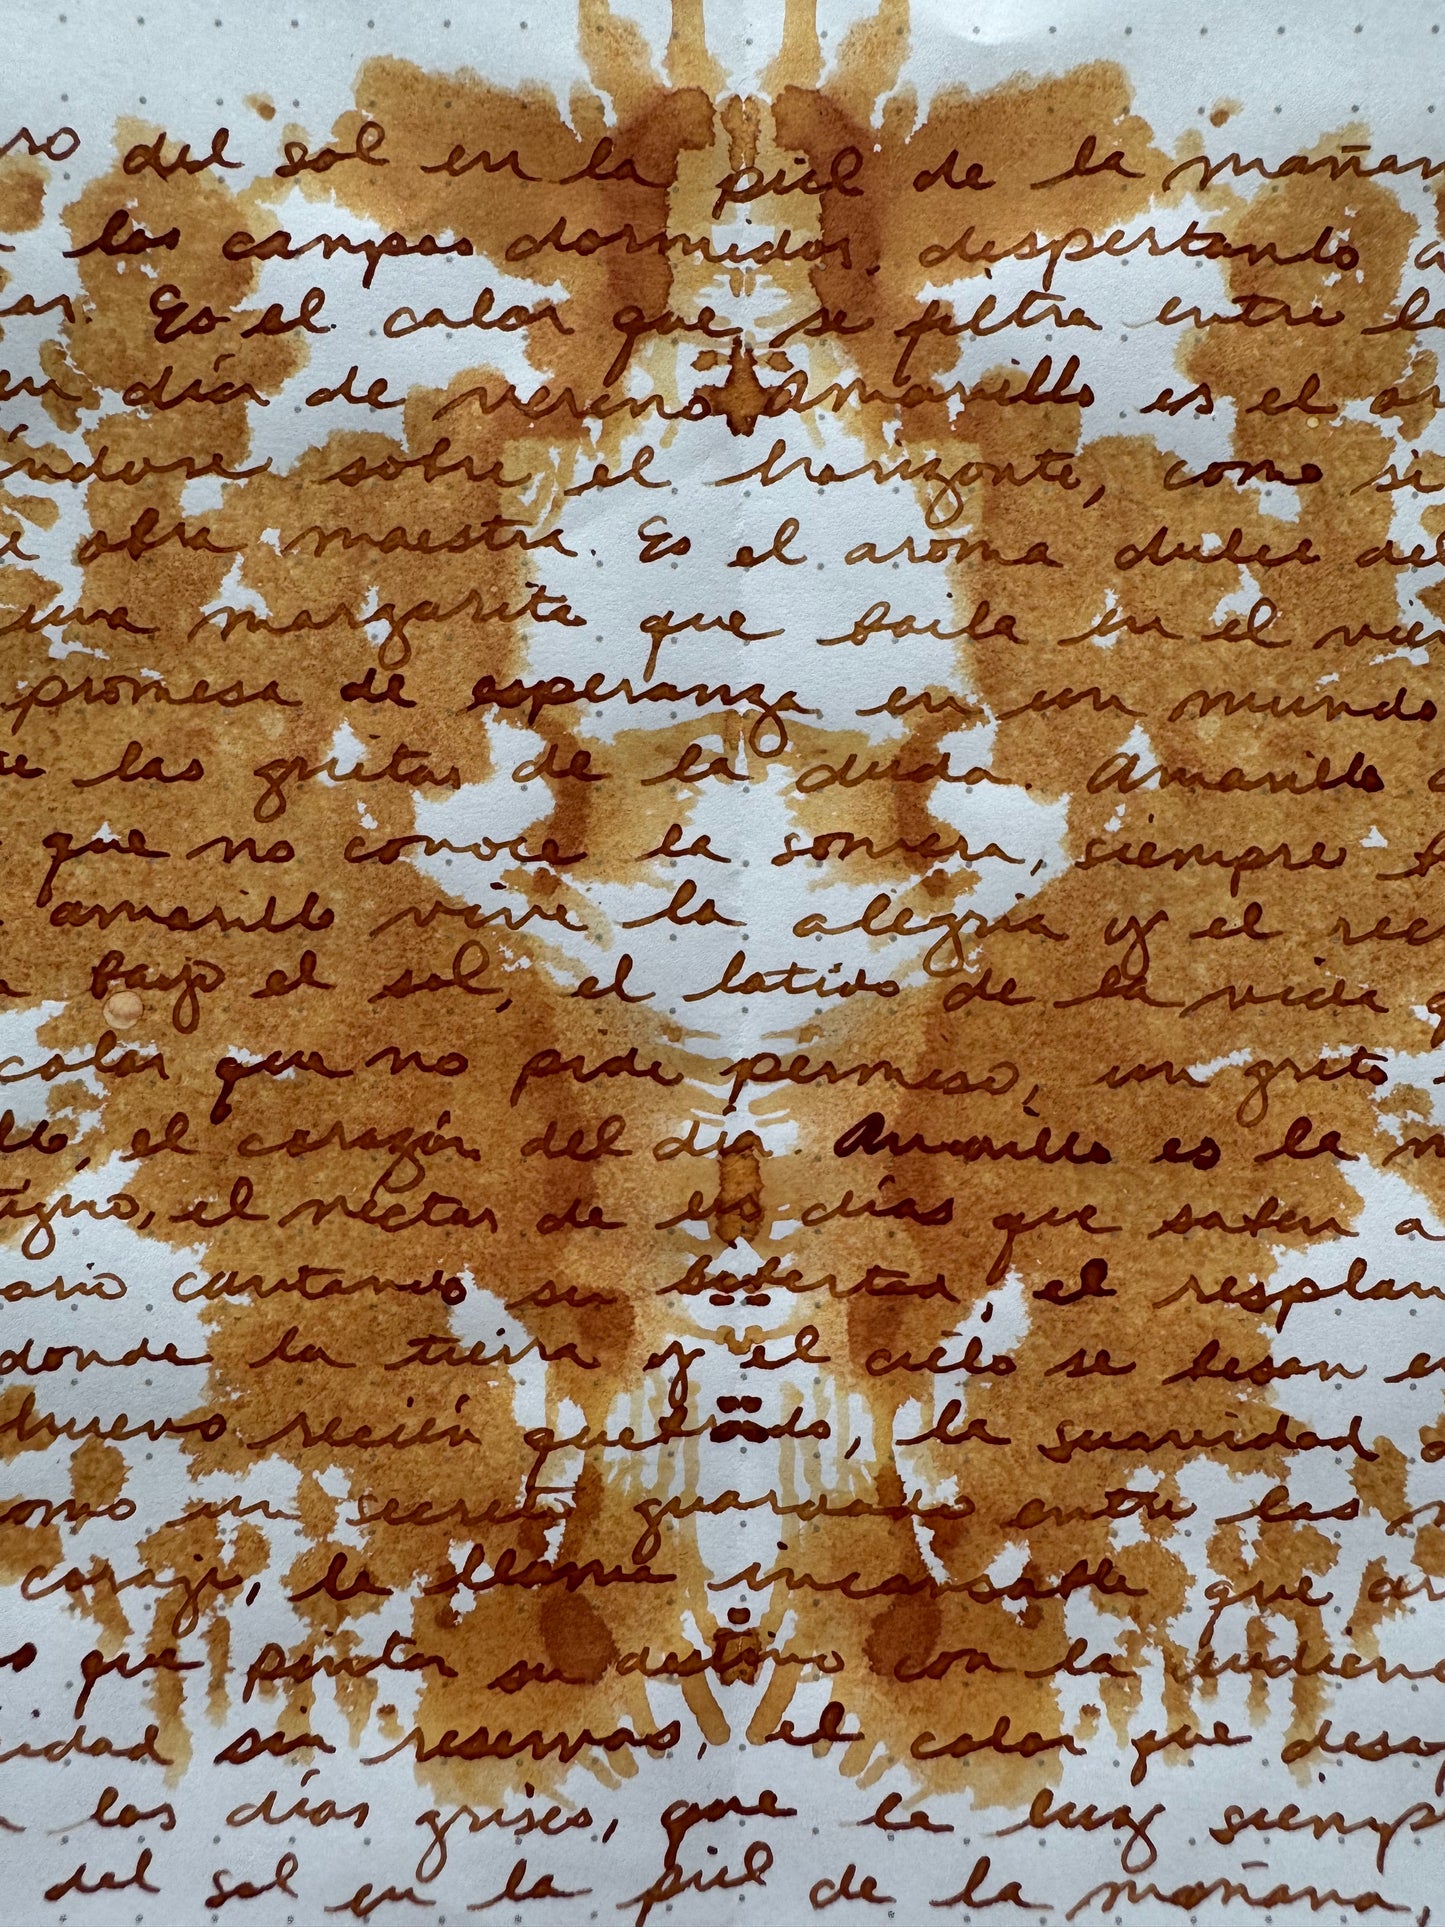 ro del sol en la piel de la mañan
los campos dormidos, despertando a
ar. Es el calor que se filtra entre la
en día de verano Amarillo es el ar
índose sobre el horizonte, como si
obra maestra. Es el aroma dulce del
una margarita que baila en el vien
promesa de esperanza en un mundo
las grietas de la duda. Amarillo
que no conoce la sombra, siempre b
amarillo vive la alegria y el rec
bajo el sol, el latido de la vida q
calor que no pide permiso, un grito
llo, el corazón del día. Amarillo es la m
tiguo, el néctar de los días que saben a
ario cantando su libertad, el resplan
donde la tierra y el cielo se besan en
huevo recién quebrado, la suavidad d
como un secreto guardado entre las
coraje, la llama incansable que ar
s que pintar su destino con la audienc
idad sin reservas, el color que desa
los días grises, que la luz siemp
del sol en la piel de la mañana,